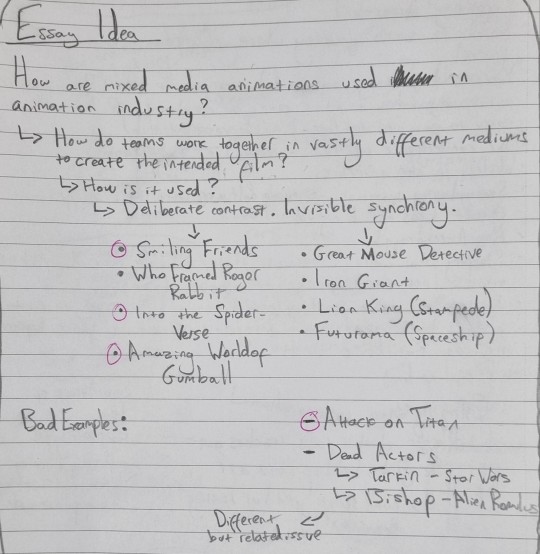 Essay Idea
How are mixed media animations used in
animation industry?
↳ How do teams work together in vastly different mediums
to create the intended film?
↳ How is it used?
↳ Deliberate contrast. Invisible synchrony.
• Smiling Friends
• Who Framed Rogor
Rabbit
• Into the Spider-
Verse
• Amazing World of
Gumball
• Great Mouse Detective
• Iron Giant
• Lion King (Stampede)
• Futurama (Spaceship)
Bad Examples:
- Attack on Titan
- Dead Actors
↳ Tarkin - Star Wars
↳ Bishop - Alien Romulus
Different
but related issue